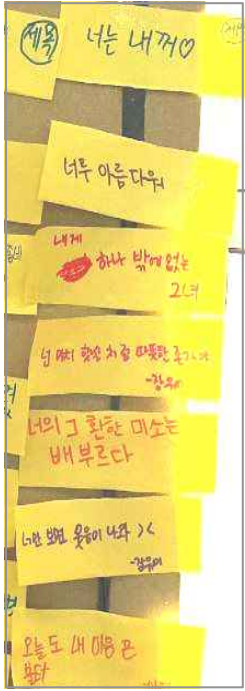 제목
너는 내꺼♡
너무 아름다워
내게
하나 밖에 없는
그녀
넌 마치 햇살 처럼 따뜻한
너의 그 환한 미소는
배부르다
너만 보면 웃음이 나와 ><
오늘도 내 마음은